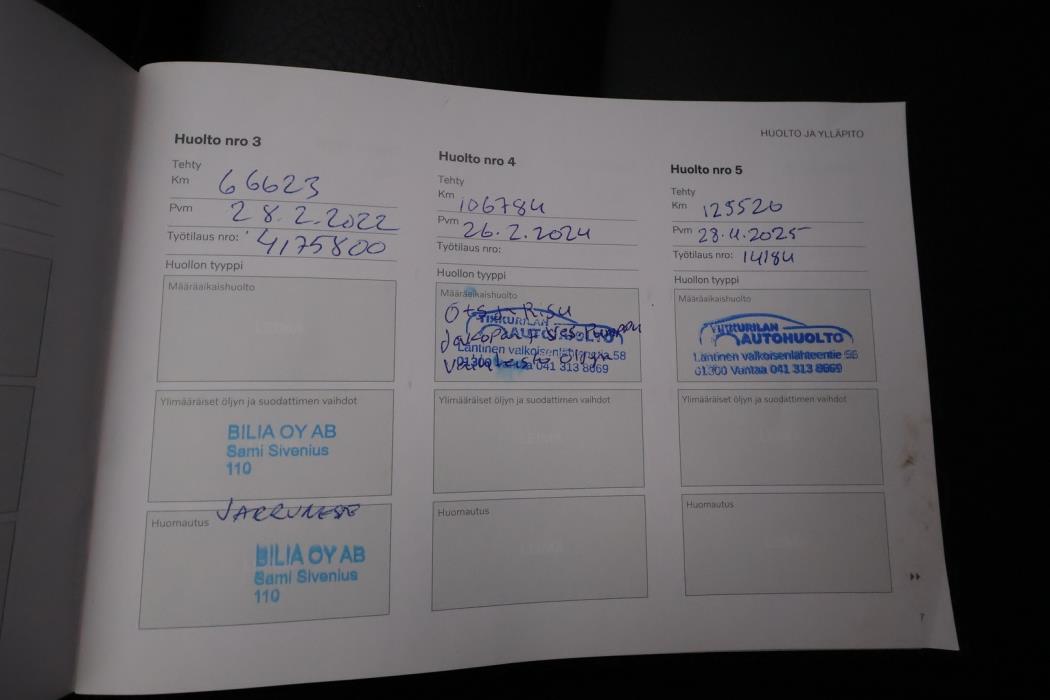 HUOLTO JA YLLÄPITO
Huolto nro 3
Tehty
Km 66623
Pvm 28.2.2022
Työtilaus nro: 4175800
Huollon tyyppi
Määräaikaishuolto
Ylimääräiset öljyn ja suodattimen vaihdot
BILIA OY AB
Sami Sivenius
110
Huomautus JARRUNESTE
BILIA OY AB
Sami Sivenius
110
Huolto nro 4
Tehty
Km 106784
Pvm 26.2.2024
Työtilaus nro:
Huollon tyyppi
Määräaikaishuolto
AUTOHUOLTO
Läntinen valkoisenlähteentie 58
01300 Vantaa 041 313 8669
Ylimääräiset öljyn ja suodattimen vaihdot
Huomautus
Huolto nro 5
Tehty
Km 125520
Pvm 28.4.2025
Työtilaus nro: 14184
Huollon tyyppi
Määräaikaishuolto
TIKKURILAN
AUTOHUOLTO
Läntinen valkoisenlähteentie 58
01300 Vantaa 041 313 8669
Ylimääräiset öljyn ja suodattimen vaihdot
Huomautus
7